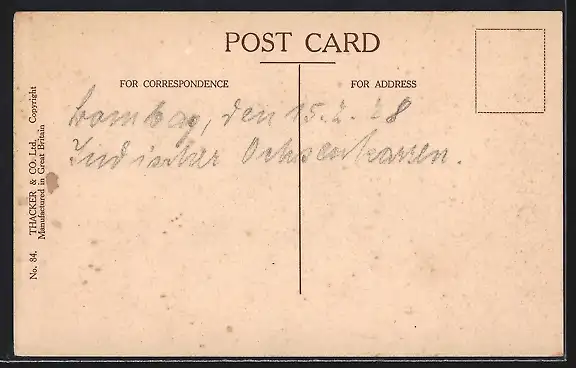 POST CARD
FOR CORRESPONDENCE
FOR ADDRESS
Bombay, den 15.2.28
Indischer Ochsenkarren.
No. 84. THACKER & CO. Ltd. Copyright
Manufactured in Great Britain